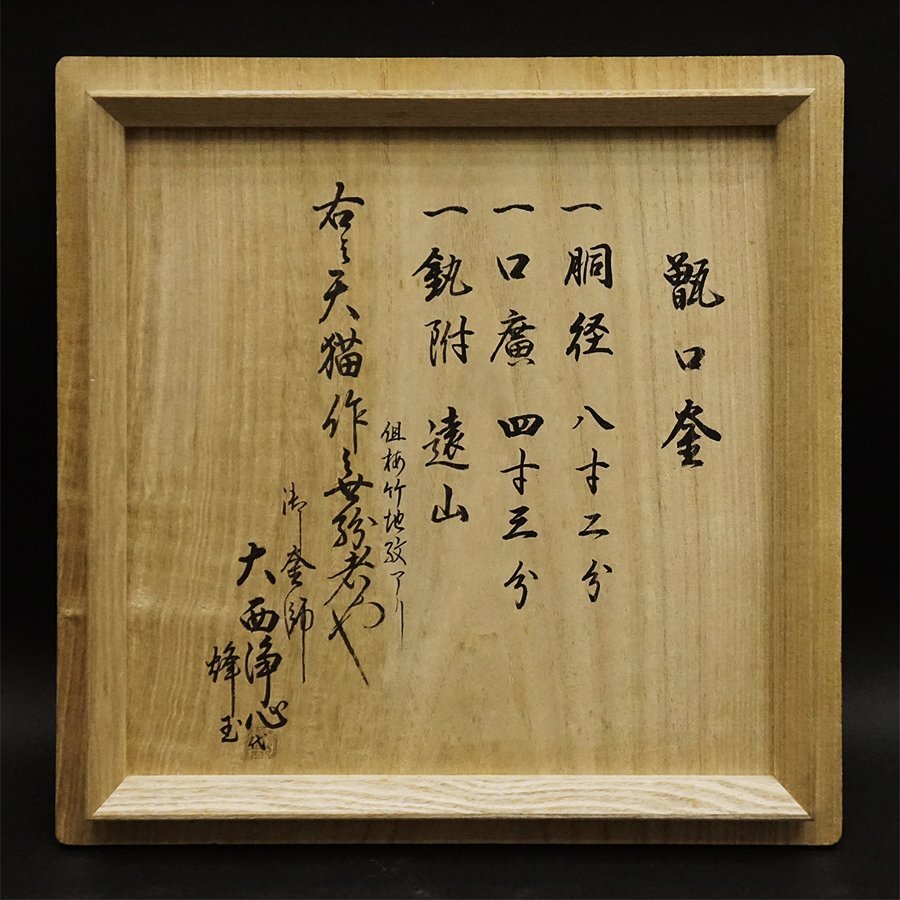 甑口釜
一 胴径 八寸二分
一 口廣 四寸三分
一 釻附 遠山
但梅竹地紋アリ
右之天猫作無紛者也
御釜師
大西浄心
代
蜂玉